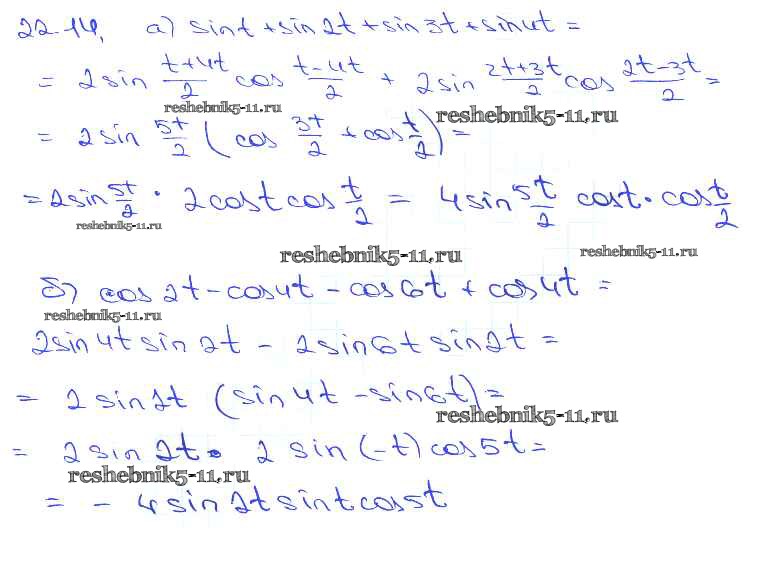 22.14. а) sint + sin2t + sin3t + sin4t =
= 2sin (t+4t)/2 cos (t-4t)/2 + 2sin (2t+3t)/2 cos (2t-3t)/2 =
reshebnik5-11.ru reshebnik5-11.ru
= 2sin 5t/2 (cos 3t/2 + cos t/2) =
= 2sin 5t/2 · 2costcos t/2 = 4sin 5t/2 cost · cos t/2
reshebnik5-11.ru
reshebnik5-11.ru reshebnik5-11.ru
б) cos2t - cos4t - cos6t + cos4t =
reshebnik5-11.ru
2sin4tsin2t - 2sin6tsin2t =
= 2sin2t (sin4t - sin6t) =
reshebnik5-11.ru
= 2sin2t · 2sin(-t)cos5t =
reshebnik5-11.ru
= - 4sin2tsintcos5t